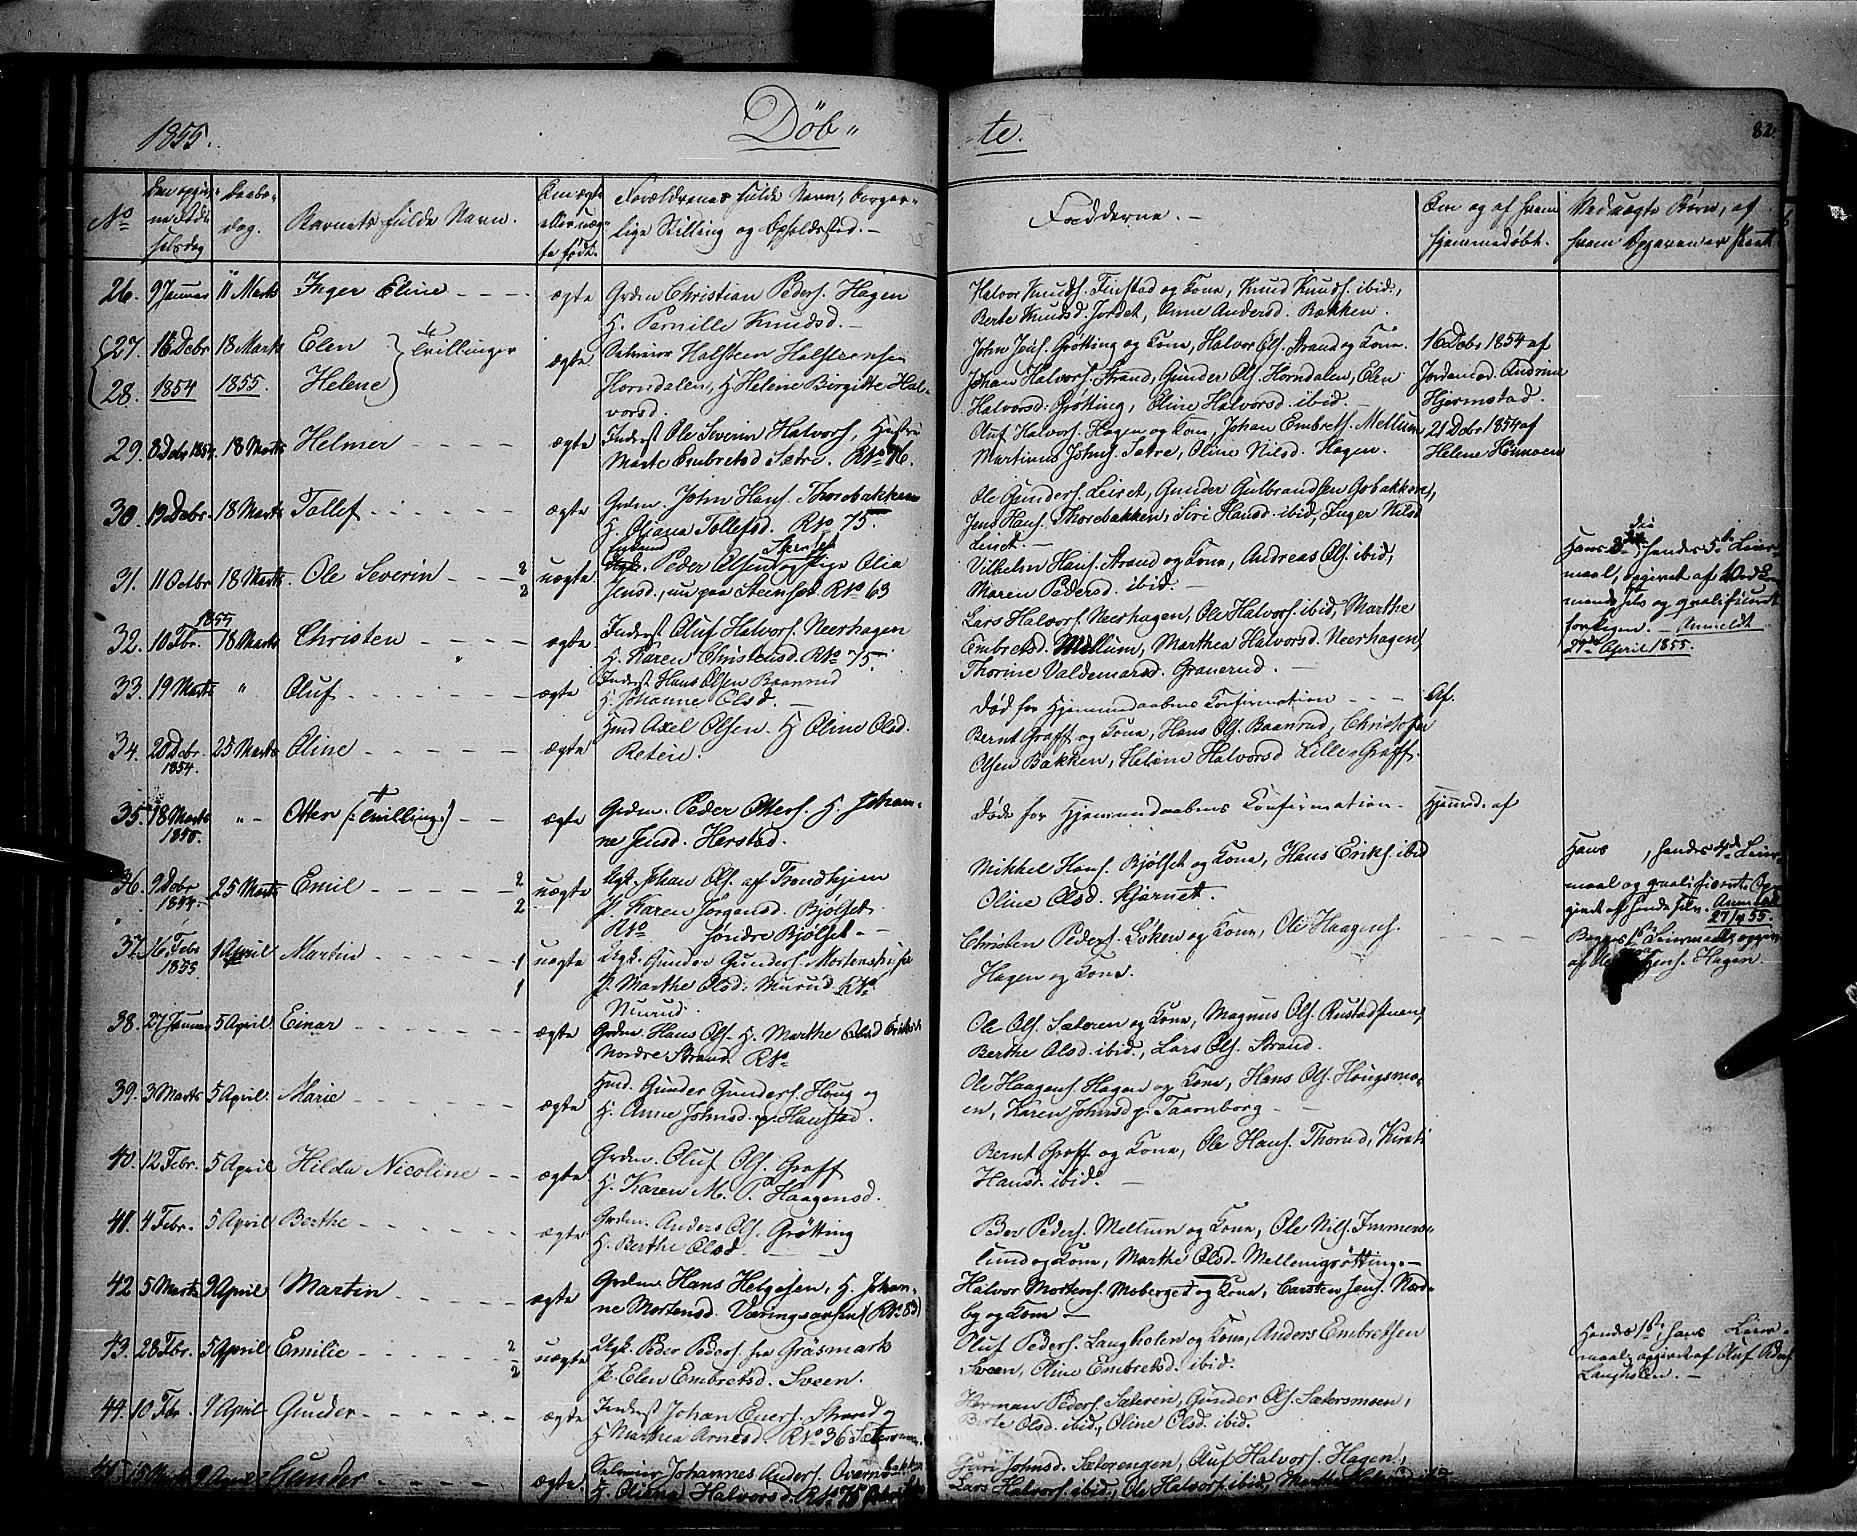 1855.
Döb-
-te.
82.
No
Den opgivne Fødselsdag
Daabsdag.
Barnets fulde Navn.
Om ægte eller uægte født.
Forældrenes fulde Navn, borgerlige Stilling og Opholdssted.
Fadderne.
Om og af hvem hjemmedøbt.
Ved uægte Børn, af hvem Opgaven er skeet
26. 9 Januar 11 Marts Inger Eline ægte Grdm Christian Peders. Hagen
H. Pernille Knudsd.
Halvor Knuds. Finstad og Kone, Knud Knuds. ibid.,
Berte Knudsd. Jordet, Anne Andersd. Bækken.
27. 16 Decbr 18 Marts Elen Tvillinger
28. 1854 1855. Helene ægte Selveier Halsteen Halsteensen
Horndalen, H Helene Birgitte Halvorsd.
John Jens. Grøtting og Kone, Halvor Ols. Strand og Kone.
Johan Halvors. Strand, Gunder Ols. Horndalen, Elen
Halvorsd. Grøtting, Eline Halvorsd ibid.
16 Decbr 1854 af
Jordemod. Andrine
Hjermstad.
29. 8 Decbr 1854. 18 Marts Helmer ægte Inderst Ole Severin Halvors, Hustru
Marte Embretsd Sætre. RNo 76.
Oluf Halvors. Hagen og Kone, Johan Embrets. Mellum
Martinus Johns. Sætre, Oline Nilsd. Hagen.
21 Decbr 1854 af
Helene
30. 19 Decbr. 18 Marts Tollef ægte Grdm. John Hans. Thorebakken
H. Oliana Tollefsd. RNo 75.
Ole Gunders. Leiret, Gunder Gulbrandsen Gobakken,
Jens Hans. Thorebakken, Siri Hansd. ibid, Inger Nilsd
Leiret.
31. 11 Octbr 18 Marts. Ole Severin 2 2 uægte Peder Olsen Steinset og Pige Olia
Jensd., nu paa Steinset RNo 63
Vilhelm Hans. Strand og Kone, Andreas Ols. ibid,
Maren Pedersd. ibid.
Hans 3die, hendes 5te Leiermaal, opgivet af Vedkommende selv og qualificeret
forlegen. Anmeldt
27de April 1855.
1855
32. 10 Fbr. 18 Marts Christen ægte Inderst Oluf Halvors. Neerhagen
H. Karen Christensd. RNo 75.
Lars Halvors. Neerhagen, Ole Halvors. ibid, Marthe
Embretsd. Mellum, Marthea Halvorsd Neerhagen,
Thorine Valdemarsd. Granerud.
33. 19 Marts " Oluf ægte Inderst Hans Olsen Baanrud
H. Johanne Olsd.
død før Hjemmedaabens Confirmation Af.
34. 20 Decbr. 1854. 25 Marts Oline ægte Hmd Axel Olsen. H Oline Olsd.
Reteie.
Bernt Graff og Kone, Hans Ols. Baanrud, Christofer
Olsen Bakken, Helene Halvorsd Lille Graff.
35. 18 Marts 1855. " Otter (Tvilling) ægte Grdm. Peder Otters. H. Johanne Jensd. Herstad.
døde før Hjemmedaabens Confirmation. Hjemmed. af
36. 9 Decbr 1854. 25 Marts Emil 2 2 uægte Ugk. Johan Ols. af Trondhjem
P. Karen Jørgensd. Bjølset
RNo Søndre Bjølset
Mikkel Hans. Bjølset og Kone, Hans Eriks. ibid
Oline Olsd. Kjernet.
Hans , hendes 4de Leiermaal og qualificeret. Opgivet af hende selv. Anmeldt
27/4 55.
37. 16 Febr 1855 1 April Martin 1 1 uægte Ugk. Gunder Gunders. Mortenstufa
P. Marthe Olsd. Nurud RNo
Nurud.
Christen Peders. Løken og Kone, Ole Haagens.
Hagen og Kone.
Begges 1ste Leiermaal, opgiv.
af Ole Haagens. Hagen.
38. 27 Januar 5 April. Einar ægte Grdm. Hans Ols. H. Marthe Olsd Eriksd
Nordre Strand. RNo
Ole Ols. Sæteren og Kone, Magnus Ols. Rustadstuen,
Berthe Olsd. ibid., Lars Ols. Strand.
39. 3 Marts 5 April. Marie ægte Hmd. Gunder Gunders. Houg og
H. Anne Johnsd. p. Haustad.
Ole Haagens. Hagen og Kone, Hans Ols. Hougsmoen, Karen Johnsd p. Taarnborg
40. 12 Febr. 5 April Hilda Nicoline ægte Grdm. Oluf Ols. Graff
H. Karen M. P. Haagensd.
Bernt Graff og Kone, Ole Hans. Thorud, Kirsti
Hansd. ibid.
41. 4 Febr. 5 April Berthe ægte Grdm. Anders Ols. Grøtting
H. Berthe Olsd.
Peder Peders. Mellum og Kone, Ole Nils. Immerslund og Kone, Marthe Olsd. Mellemgrøtting.
42 5 Marts 9 April Martin ægte Grdm. Hans Helgesen, H. Johanne Mortensd. Væringsaasen (RNo 83)
Halvor Mortens. Moberget og Kone, Carsten Jens. Nordby og Kone
43. 28 Fbr. 5 April Emilie 2 2 uægte Ugk. Peder Peders. fra Gräsmark
P. Elen Embretsd. Sveen.
Oluf Peders. Langholen og Kone, Anders Embretsen
Sveen, Oline Embretsd. ibid.
Hendes 1ste, hans Leiermaal, opgivet af Oluf Peders.
Langholen.
44. 10 Fbr. 9 April Gunder ægte Inderst Johan Evers. Strand og
H Marthea Arnesd. RNo 36
Herman Peders. Sæteren, Gunder Ols. Sætersmoen,
Berte Olsd. ibid., Oline Olsd. ibid.
45. 15 Marts 9 April Gunder ægte Selveier Johannes Anders. Overnbakken
H. Oliana Halvorsd. RNo 75
Guri Johnsd. Sæterengen, Oluf Halvors. Hagen,
Lars Halvors. ibid., Ole Halvors. ibid, Marthe Halvorsd ibid